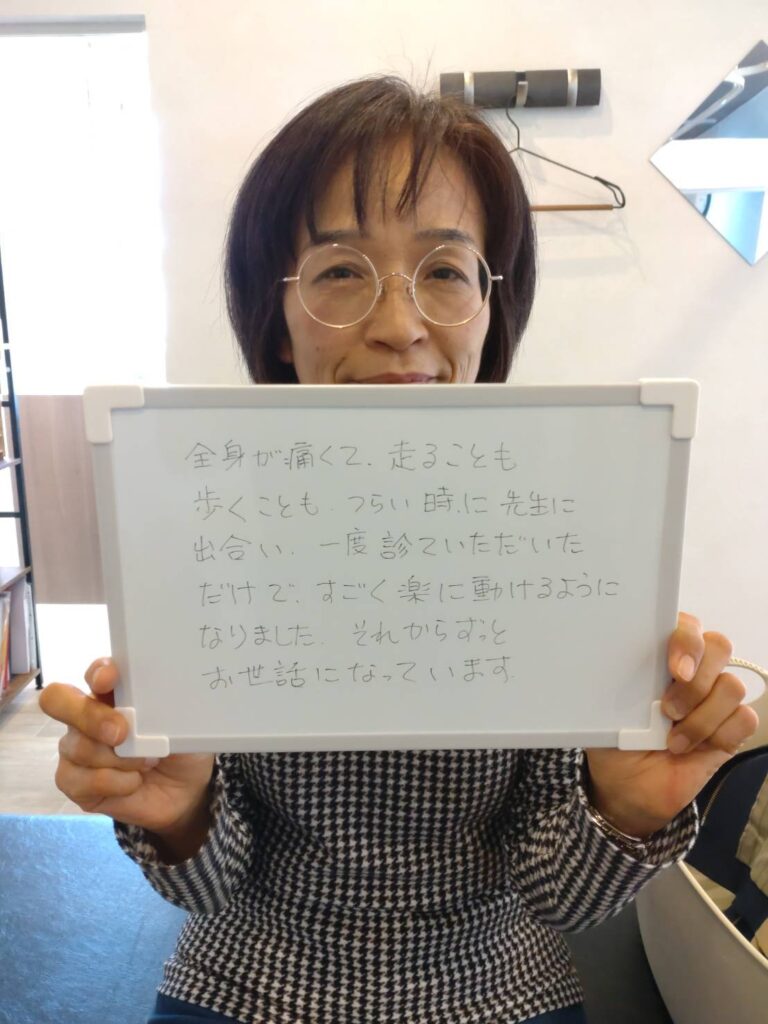 全身が痛くて、走ることも
歩くことも、つらい時、に先生に
出合い、一度診ていただいた
だけで、すごく楽に動けるように
なりました。それからずっと
お世話になっています。